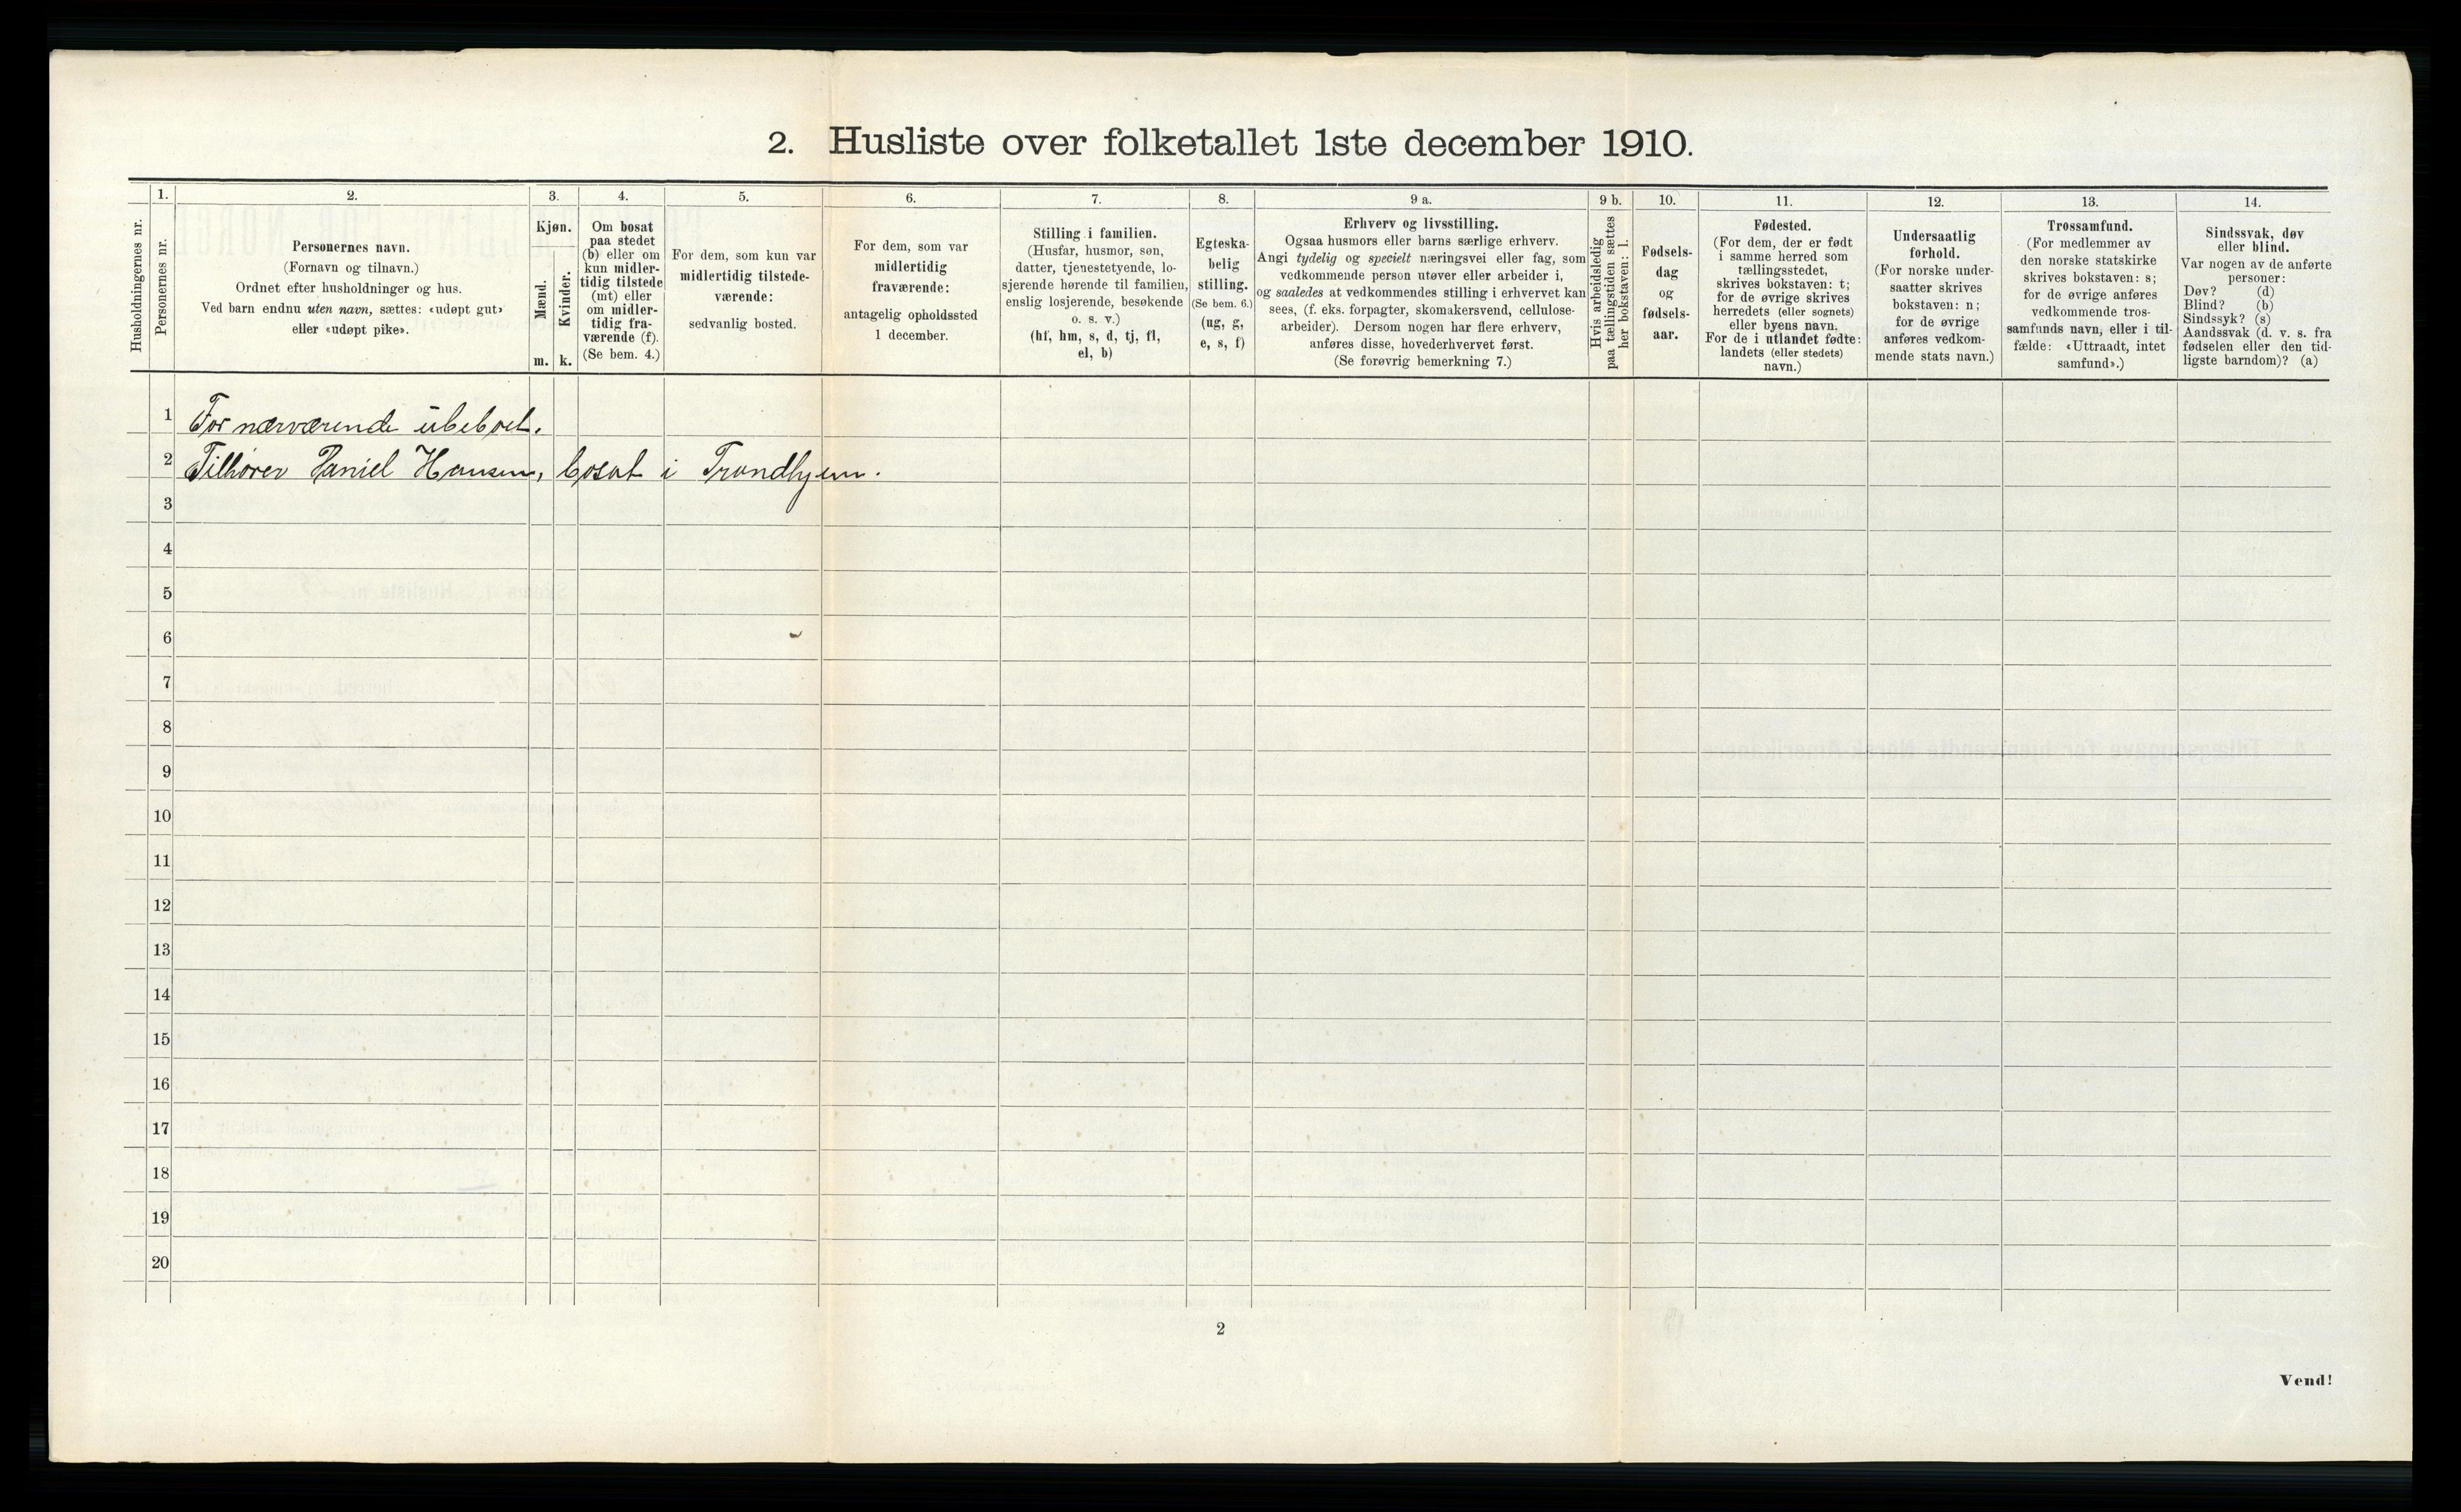 2. Husliste over folketallet 1ste december 1910.
Husholdningernes nr.
1.
Personernes nr.
2.
Personernes navn.
(Fornavn og tilnavn.)
Ordnet efter husholdninger og hus.
Ved barn endnu uten navn, sættes: «udøpt gut»
eller «udøpt pike».
3.
Kjøn.
Mænd.
m.
Kvinder.
k.
4.
Om bosat
paa stedet
(b) eller om
kun midler-
tidig tilstede
(mt) eller
om midler-
tidig fra-
værende (f).
(Se bem. 4.)
5.
For dem, som kun var
midlertidig tilstede-
værende:
sedvanlig bosted.
6.
For dem, som var
midlertidig
fraværende:
antagelig opholdssted
1 december.
7.
Stilling i familien.
(Husfar, husmor, søn,
datter, tjenestetyende, lo-
sjerende hørende til familien,
enslig losjerende, besøkende
o. s. v.)
(hf, hm, s, d, tj, fl,
el, b)
8.
Egteska-
belig
stilling.
(Se bem. 6.)
(ug, g,
e, s, f)
9 a.
Erhverv og livsstilling.
Ogsaa husmors eller barns særlige erhverv.
Angi tydelig og specielt næringsvei eller fag, som
vedkommende person utøver eller arbeider i,
og saaledes at vedkommendes stilling i erhvervet kan
sees, (f. eks. forpagter, skomakersvend, cellulose-
arbeider). Dersom nogen har flere erhverv,
anføres disse, hovederhvervet først.
(Se forøvrig bemerkning 7.)
9 b.
Hvis arbeidsledig
paa tællingstiden sættes
her bokstaven: l.
10.
Fødsels-
dag
og
fødsels-
aar.
11.
Fødested.
(For dem, der er født
i samme herred som
tællingsstedet,
skrives bokstaven: t;
for de øvrige skrives
herredets (eller sognets)
eller byens navn.
For de i utlandet fødte:
landets (eller stedets)
navn.)
12.
Undersaatlig
forhold.
(For norske under-
saatter skrives
bokstaven: n;
for de øvrige
anføres vedkom-
mende stats navn.)
13.
Trossamfund.
(For medlemmer av
den norske statskirke
skrives bokstaven: s;
for de øvrige anføres
vedkommende tros-
samfunds navn, eller i til-
fælde: «Uttraadt, intet
samfund».)
14.
Sindssvak, døv
eller blind.
Var nogen av de anførte
personer:
Døv? (d)
Blind? (b)
Sindssyk? (s)
Aandssvak (d. v. s. fra
fødselen eller den tid-
ligste barndom)? (a)
1 For nærværende ubeboet.
2 Tilhører Daniel Hansen, bosat i Trondhjem.
3
4
5
6
7
8
9
10
11
12
13
14
15
16
17
18
19
20
2
Vend!